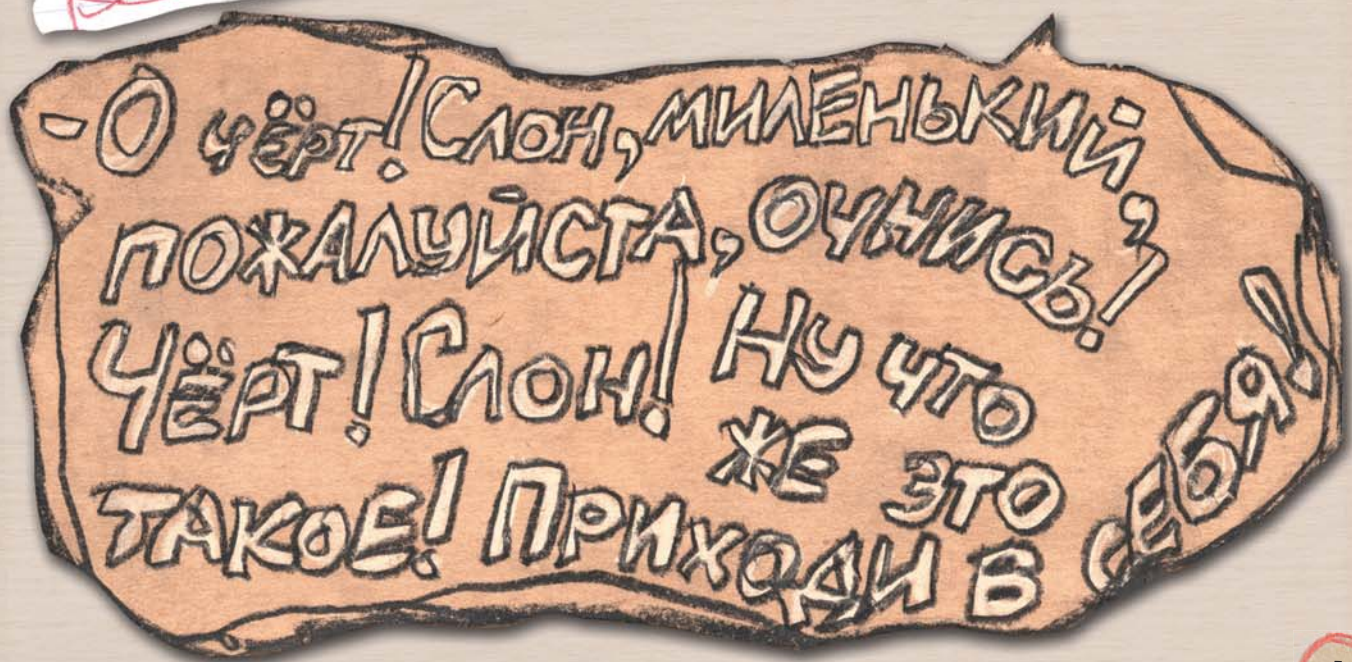 - О чёрт! Слон, миленький,
пожалуйста, очнись!
Чёрт! Слон! Ну что
же это
такое! Приходи в себя!